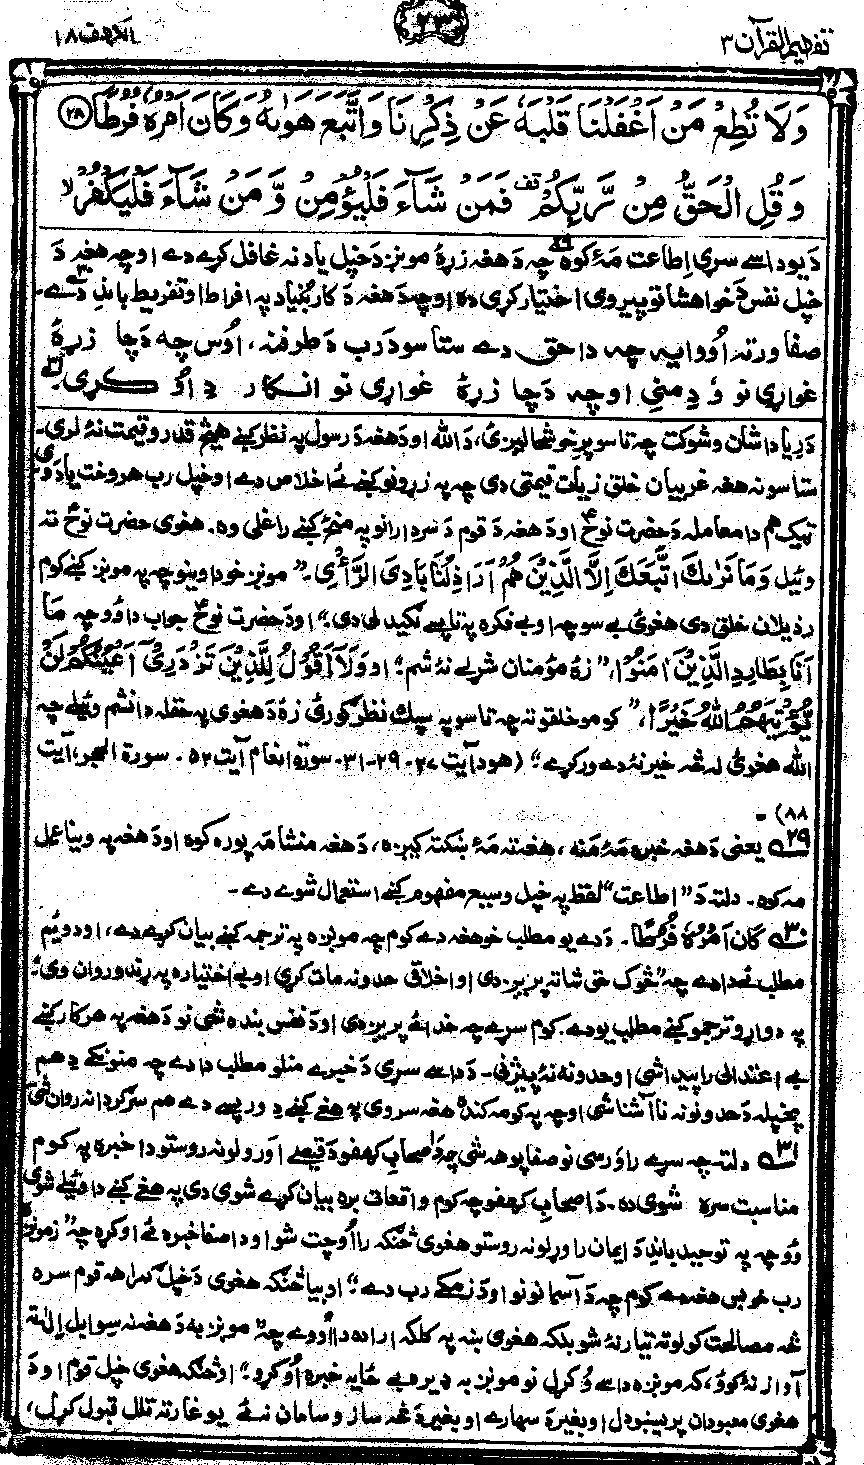 تفهیم القرآن ۳
۲۳
الکهف ۱۸
وَلَا تُطِعْ مَنْ اَغْفَلْنَا قَلْبَهٗ عَنْ ذِكْرِنَا وَاتَّبَعَ هَوٰىهُ وَكَانَ اَمْرُهٗ فُرُطًا ﴿۲۸﴾
وَقُلِ الْحَقُّ مِنْ رَّبِّكُمْ قف فَمَنْ شَآءَ فَلْيُؤْمِنْ وَّمَنْ شَآءَ فَلْيَكْفُرْ لا
دَ یو داسے سړی اِطاعت مهٔ کوه چه دَ هغه زړهٔ مونږ دَ خپل یاد نه غافل کړے دے او چه هغه دَ
خپل نفس دَ خواهشاتو پیروی اختیار کړی ده او چه دَ هغه دَ کار بُنیاد په افراط او تفریط باندِ دے۔
صفا ورته اُووایه چه دا حق دے ستاسو دَ رب دَ طرفنه، اوس چه دَ چا زړهٔ
غواړی نو وُ دِ منی او چه دَ چا زړهٔ غواړی نو انکار دِ اُکړی۔
دَ ریا دا شان وشوکت چه تاسو پرِ خوشحالېږئ، دَ الله او دَ هغه دَ رسول په نظر کښے هیڅ قدر و قیمت نهٔ لری۔
ستاسو نه هغه غریبان خلق زیات قیمتی دی چه په زړونو کښے ئے اخلاص دے او خپل رب هر وخت یادوی
ټیک هم دا معامله دَ حضرت نوحؑ او دَ هغه دَ قوم دَ سردارانو په منځ کښے راغلی وه۔ هغوی حضرت نوحؑ ته
وئیل وَمَا نَرٰىكَ اتَّبَعَكَ اِلَّا الَّذِيْنَ هُمْ اَرَاذِلُنَا بَادِيَ الرَّاْيِ۔ ”مونږ خو دا وینو چه په مونږ کښے کوم
رذیلان خلق دی هغوی بے سوچه او بے فکره په تا پسے لګیدلی دی۔“ او دَ حضرت نوحؑ جواب دا وو چه مَا
اَنَا بِطَارِدِ الَّذِيْنَ اٰمَنُوْا، ”زهٔ مؤمنان شړلے نهٔ شم“؛ او وَلَا اَقُوْلُ لِلَّذِيْنَ تَزْدَرِيْ اَعْيُنُكُمْ لَنْ
يُّؤْتِيَهُمُ اللهُ خَيْرًا، ”کومو خلقو ته چه تاسو په سپک نظر ګورئ زهٔ دَ هغوی په حقله دا نشم وئیلے چه
الله هغوی له څه خیر نهٔ دے ورکړے“ (هود آیت ۲۷-۲۹-۳۱۔ سورة انعام آیت ۵۲۔ سورة الحجر، آیت
۸۸)۔
۲۹ یعنی دَ هغه خبره مهٔ منه، هغه ته مهٔ ښکته کېږه، دَ هغه منشا مه پوره کوه او دَ هغه په وینا عمل
مه کوه۔ دلته دَ ”اطاعت“ لفظ په خپل وسیع مفهوم کښے استعمال شوے دے۔
۳۰ کَانَ اَمْرُهٗ فُرُطًا۔ دَ دے یو مطلب خو هغه دے کوم چه مونږه په ترجمه کښے بیان کړے دے، او دویم
مطلب ئے دا دے چه ”څوک حق شاته پریږدی او اخلاقی حدونه مات کړی او بے اختیاره په ړندو روان وی“؛
په دواړو ترجمو کښے مطلب یو دے۔ کوم سړے چه خدائے پریږدی او دَ نفس بنده شی نو دَ هغه په هر کار کښے
بے اعتدالی را پیدا شی او حدونه نهٔ پیژنی۔ دَ داسے سړی دَ خبرے منلو مطلب دا دے چه منونکے دِ هم
پخپله دَ حدونو نه ناآشنا شی او چه په کومه کنده هغه سړوی په هغے کښے دِ ورپسے دے هم سرګردانه روان شی۔
۳۱ دلته چه سړے راؤرسی نو صفا پوهه شی چه دَ اصحابِ کهف دَ قیصے اورولو نه روستو دا خبره په کوم
مناسبت سره شوی ده۔ دَ اصحابِ کهف چه کوم واقعات بره بیان کړے شوی دی په هغے کښے دا وئیلے شوی
وُو چه په توحید باندِ دَ ایمان راوړلو نه روستو هغوی څنګه را اُوچت شو او دا صفا خبره ئے اوکړه چه ”زمونږ
رب خو بس هغه دے کوم چه دَ آسمانونو او دَ زمکے رب دے“؛ او بیا څنګه هغوی دَ خپل ګمراهه قوم سره
څه مصالحت کولو ته تیار نهٔ شو بلکه هغوی بنه په کلکه اراده دا اُووے چه ”مونږ به دَ هغه نه سوا بل اِلٰه ته
آواز نهٔ کوؤ، که مونږه داسے وُکړل نو مونږ به ډیره بے ځایه خبره اُوکړو“؛ او څنګه هغوی خپل قوم او دَ
هغوی معبودان پریښودل او بغیر دَ سهارے او بغیر دَ څه ساز و سامان نه ئے یو غار ته تلل قبول کړل،